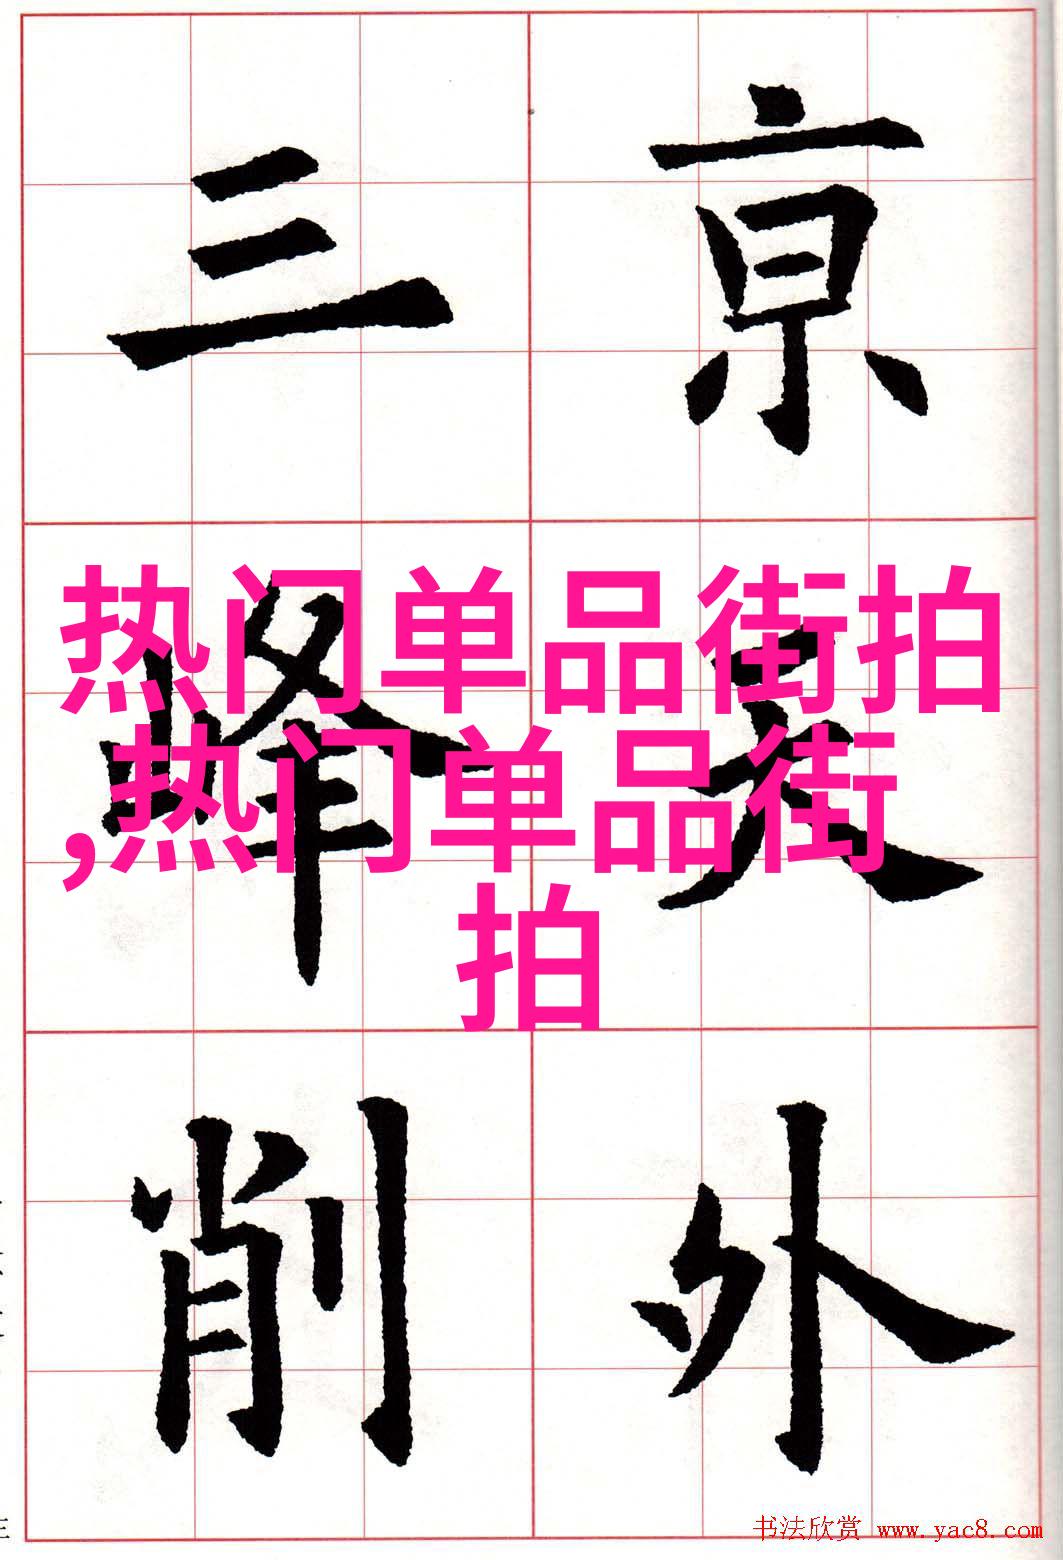 亰
外
三峰削
热门单品街拍
,热门单品街
拍
书法欣赏 www.yac8.com